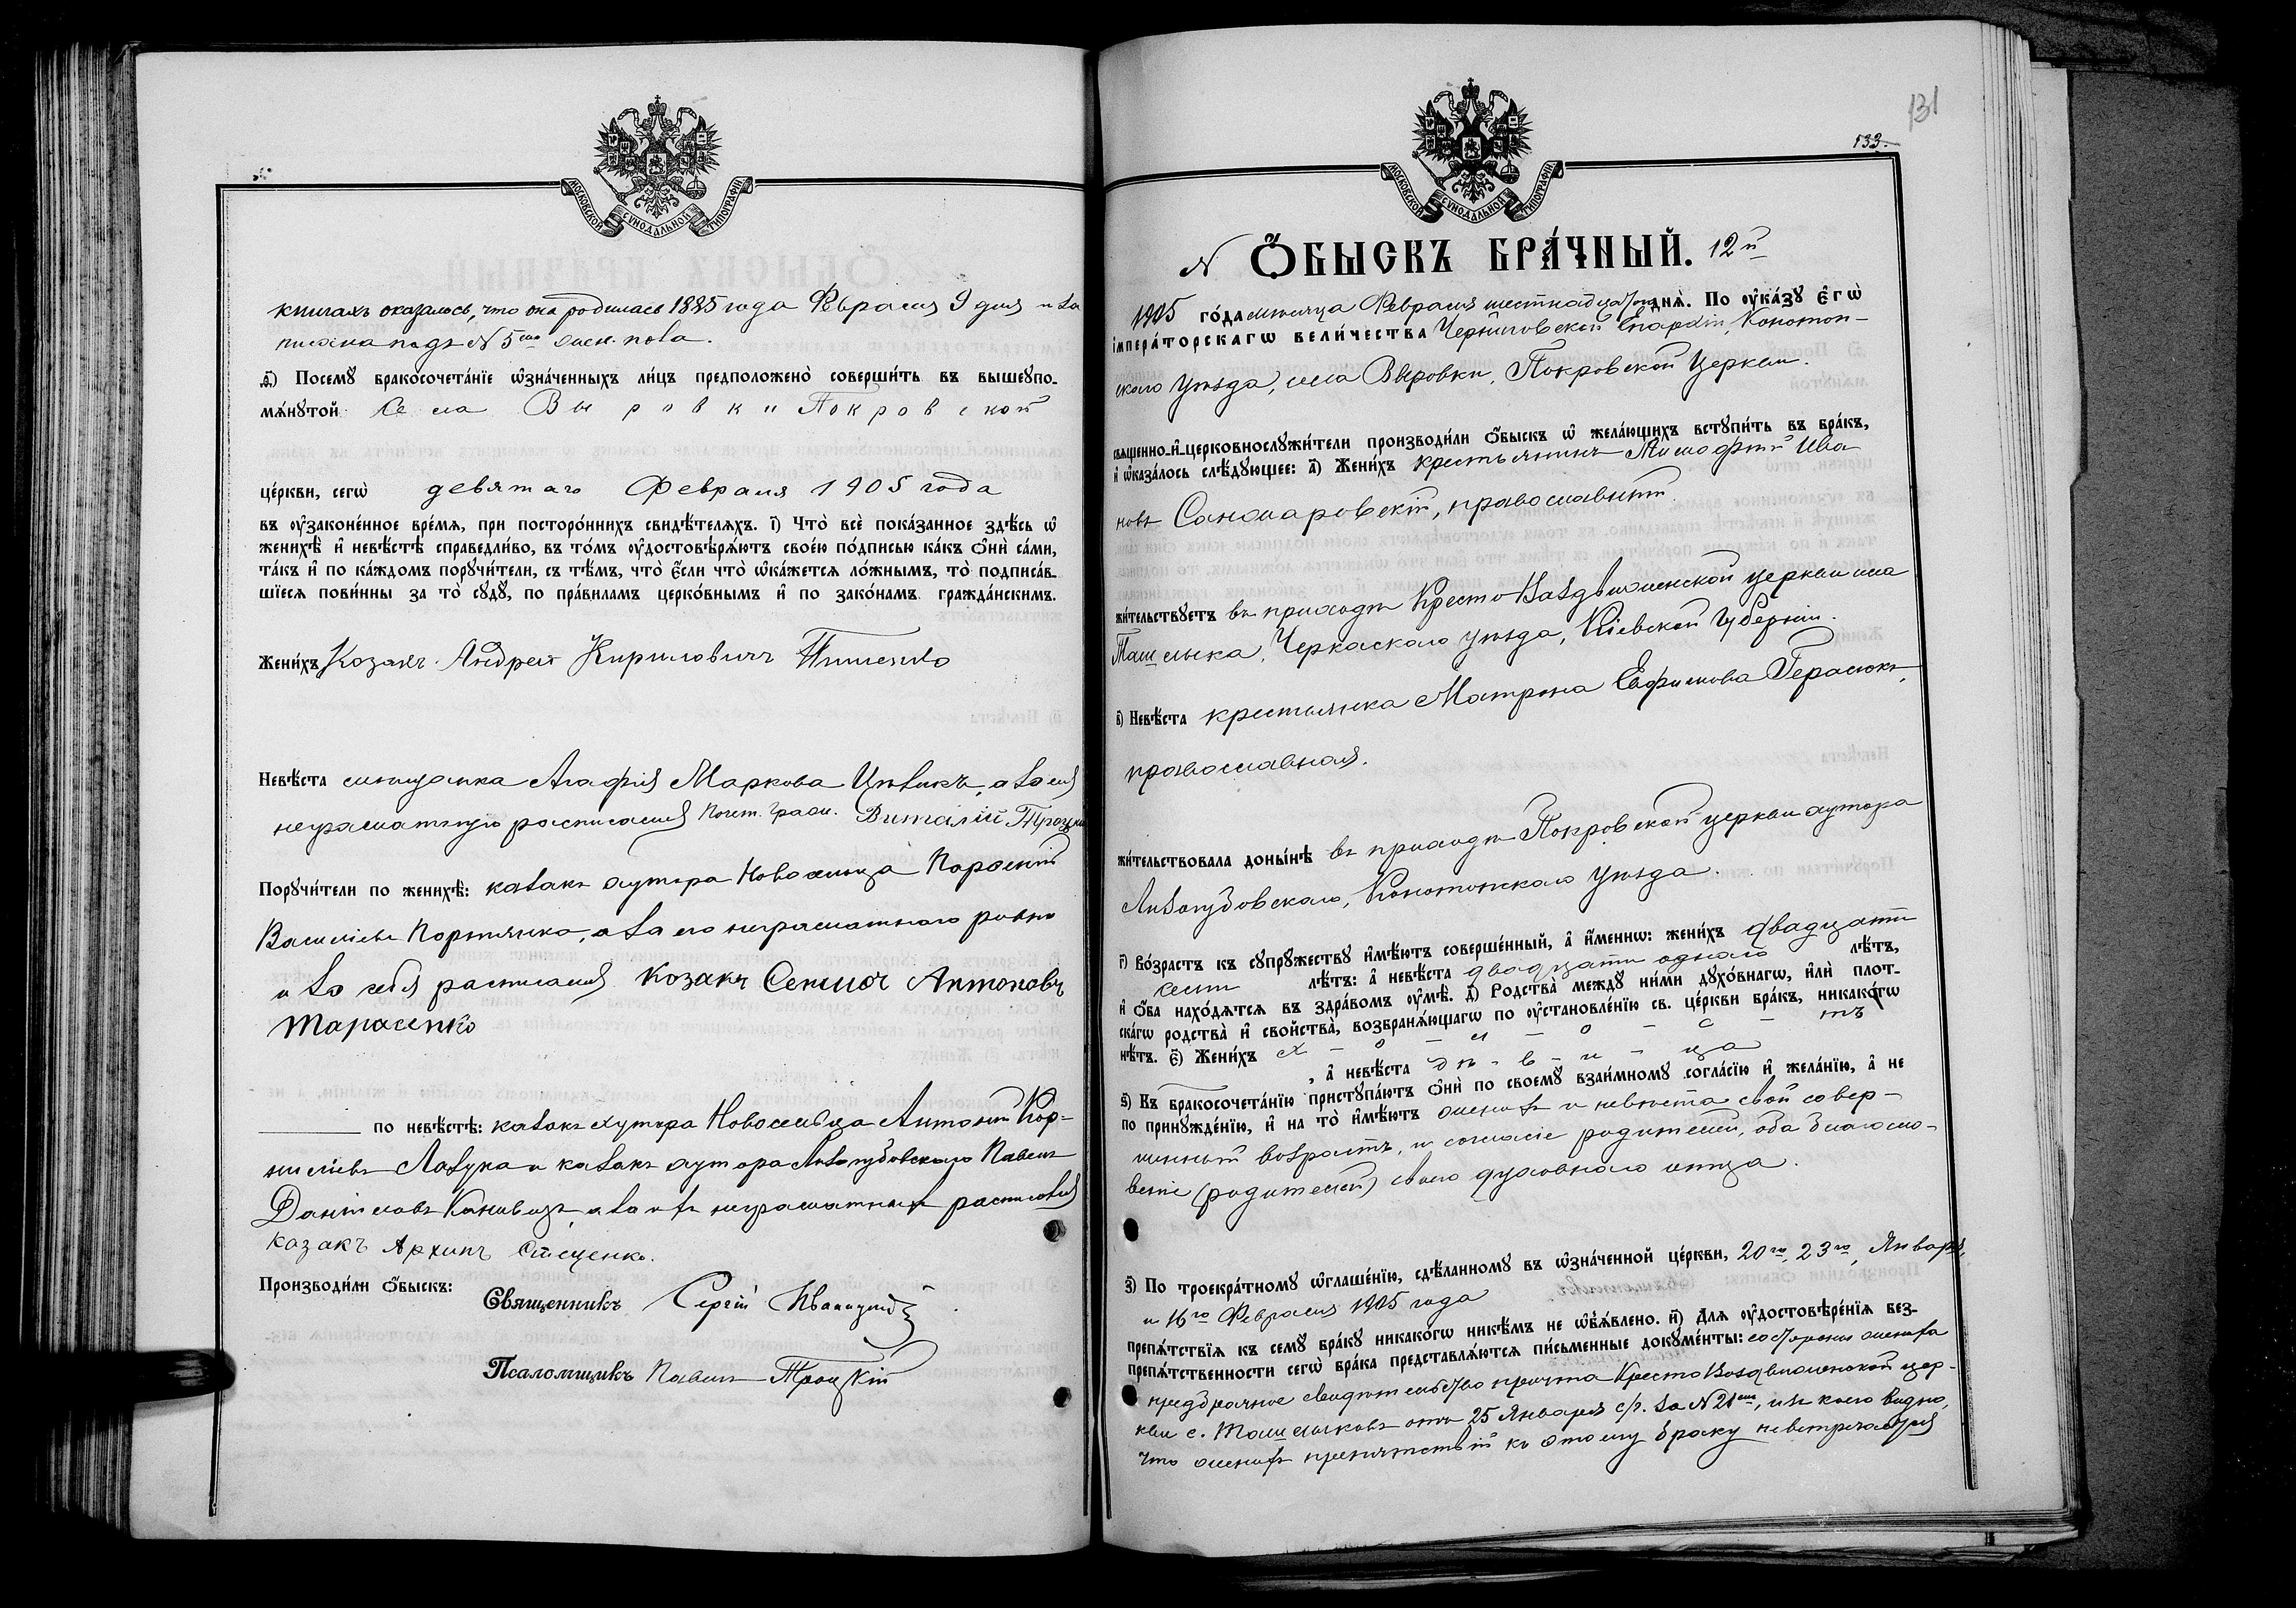 МОСКОВСКОЙ СѴНОДАЛЬНОЙ ТИПОГРАФІИ
книгахъ оказалось, что она родилась 1885 года Февраля 9 дня и за
писана подъ N 5мъ женск. пола.
ѳ҃) Посемꙋ бракосочета́нїе ѡ҆зна́ченныхъ ли́цъ предположено̀ соверши́ть въ вышеꙋпо-
мѧ́нꙋтой села Выровки Покровской
це́ркви, сегѡ̀ девятаго Февраля 1905 года
въ ᲂу҆законе́нное вре́мѧ, при посторо́ннихъ свидѣ́телѧхъ. і҃) Что̀ всѐ пока́занное здѣ́сь ѡ҆
женихѣ̀ и҆ невѣ́стѣ справедли́во, въ то́мъ ᲂу҆достовѣрѧ́ютъ свое́ю по́дписью ка́къ ѻ҆нѝ са́ми,
та́къ и҆ по ка́ждомъ порꙋчи́тели, съ тѣ́мъ, что̀ є҆́сли что̀ ѡ҆ка́жетсѧ ло́жнымъ, то̀ подписа́в-
шїесѧ пови́нны за то̀ сꙋдꙋ̀, по пра́виламъ церко́внымъ и҆ по зако́намъ гражда́нскимъ.
Жени́хъ Козакъ Андрей Кириловичъ Тищенко
Невѣ́ста мѣщанка Агафія Маркова Цѣзикъ, а за нея
неграматную расписался Почет. Граж. Виталій Троцкій
Порꙋчи́тели по женихѣ̀: казакъ хутора Новосельца Корній
Василіевъ Портянко, а за его неграматнаго ровно
и за себя расписался Козакъ Семионъ Антоновъ
Тарасенко
по невѣ́стѣ: казакъ хутора Новосельца Антоній Кор-
ниліевъ Лазука и казакъ хутора Лизогубовскаго Павелъ
Даніиловъ Канивецъ, а за ихъ неграматныхъ расписался
казакъ Архипъ Стеценко.
Производи́ли ѻ҆́быскъ:
Священникъ Сергій
Псаломщикъ Павелъ Троцкій
131
133.
МОСКОВСКОЙ СѴНОДАЛЬНОЙ ТИПОГРАФІИ
N Ѻ҆́БЫСКЪ БРА́ЧНЫЙ. 12й
1905 го́да мѣсяца Февраля шестнадцатого днѧ̀. По ᲂу҆ка́зꙋ є҆гѡ̀
і҆мпера́торскагѡ вели́чества Черниговской Епархіи, Конотоп-
скаго уѣзда, села Выровки, Покровской Церкви.
свѧще́нно-и҆-церковнослꙋжи́тели производи́ли ѻ҆́быскъ ѡ҆ жела́ющихъ встꙋпи́ть въ бра́къ,
и҆ ѡ҆каза́лось слѣ́дꙋющее: а҃) Жени́хъ крестьянинъ Тимофей Ива
новъ Сандаровскій, православный.
жи́тельствꙋетъ въ приходѣ Кресто-Воздвиженской церкви села
Ташлыка, Черкаскаго уѣзда, Кіевской Губерніи.
в҃) Невѣ́ста крестьянка Матрона Ефимова Герасюкъ,
православная.
жи́тельствовала доны́нѣ въ приходѣ Покровской церкви хутора
Лизогубовскаго, Конотопскаго уѣзда.
г҃) Во́зрастъ къ сꙋпрꙋ́жествꙋ и҆мѣ́ютъ соверше́нный, а҆ и҆́меннѡ: жени́хъ двадцати
семи лѣ́тъ: а҆ невѣ́ста двадцати одного лѣ́тъ,
и҆ ѻ҆́ба нахо́дѧтсѧ въ здра́вомъ ᲂу҆мѣ̀. д҃) Родства̀ междꙋ ни́ми дꙋхо́внагѡ, и҆лѝ плот-
ска́гѡ родства̀ и҆ сво́йства, возбранѧ́ющагѡ по ᲂу҆становле́нїю св. це́ркви бра́къ, никако́гѡ
нѣ́тъ. є҃) Жени́хъ х - о - л - о - с - тъ
, а҆ невѣ́ста дѣ - в - и - ца
ѕ҃) Къ бракосочета́нїю пристꙋпа́ютъ ѻ҆нѝ по своемꙋ̀ взаи́мномꙋ согла́сїю и҆ жела́нїю, а҆ не
по принꙋжде́нїю, и҆ на то̀ и҆мѣ́ютъ женихъ и невѣста свой совер-
шенный возрастъ, и согласіе родителей, оба благосло-
веніе (родителей) своего духовнаго отца.
з҃) По троекра́тномꙋ ѡ҆глаше́нїю, сдѣ́ланномꙋ въ ѡ҆зна́ченной це́ркви, 20го, 23го, Января,
и 16го Февраля 1905 года
препѧ́тствїѧ къ семꙋ̀ бра́кꙋ никако́гѡ никѣ́мъ не ѡ҆б̾ѧ́влено. и҃) Длѧ̀ ᲂу҆достовѣре́нїѧ без-
препѧ́тственности сегѡ̀ бра́ка представлѧ́ютсѧ пи́сьменные докꙋме́нты: со стороны жениха
предбрачное свидѣтельство причта Кресто Воздвиженской цер-
кви с. Ташлыковъ отъ 25 Января с/г. за N 21мъ, изъ коего видно,
что женихъ препятствій къ этому браку невстречается